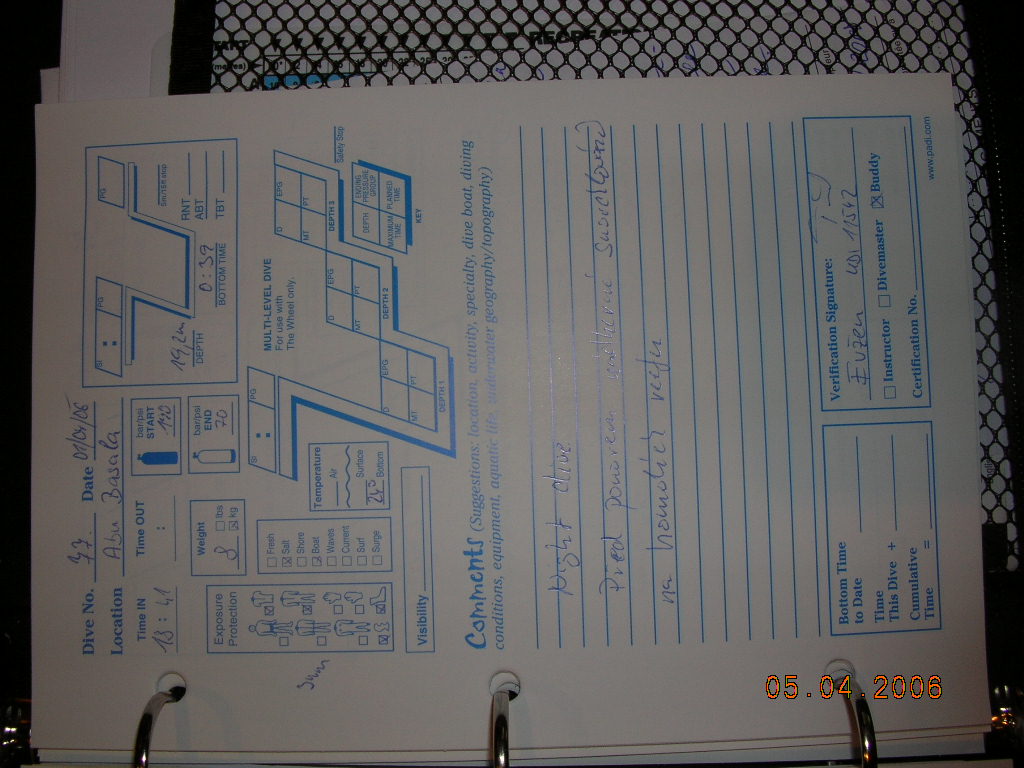 Dive No. 37. Date 01/04/06
Location Abu Basala
Time IN
Time OUT
18 : 41
:
bar/psi
START
110
bar/psi
END
70
SI
:
PG
PG
19,2m
DEPTH
0:39
BOTTOM TIME
5m/15ft stop
RNT
ABT
TBT
Exposure
Protection
3mm
Weight
8
lbs
kg
Fresh
Salt
Shore
Boat
Waves
Current
Surf
Surge
Temperature
Air
Surface
Bottom
Visibility
MULTI-LEVEL DIVE
For use with
The Wheel only.
SI
:
PG
D
EPG
MT
PT
DEPTH 1
D
EPG
MT
PT
DEPTH 2
D
EPG
MT
PT
DEPTH 3
Safety Stop
DEPTH
ENDING PRESSURE GROUP
MAXIMUM TIME
PLANNED TIME
KEY
Comments (Suggestions: location, activity, specialty, dive boat, diving
conditions, equipment, aquatic life, underwater geography/topography)
Night dive
Bottom Time
to Date
Time
This Dive +
Cumulative
Time =
Verification Signature:
Evžen
Instructor Divemaster Buddy
Certification No.
www.padi.com
05.04.2006